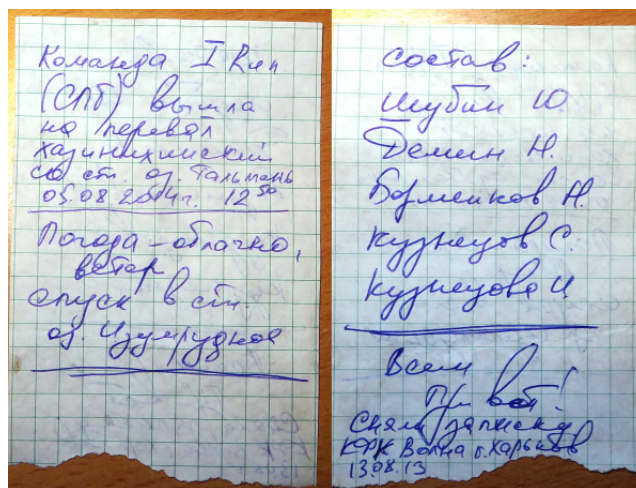 Команда I Rип
(СПб) вышла
на перевал
Хазинихинский
со ст. оз. Тальмень
05.08 2014г. 12 50
Погода - облачно,
ветер
спуск в ст.
оз. Изумрудное
состав:
Шубин Ю.
Демин Н.
Бозменков Н.
Кузнецов С.
Кузнецова И.
Всем
Привет!
Сняли записку
КФК Волна г. Харьков
13.08.13